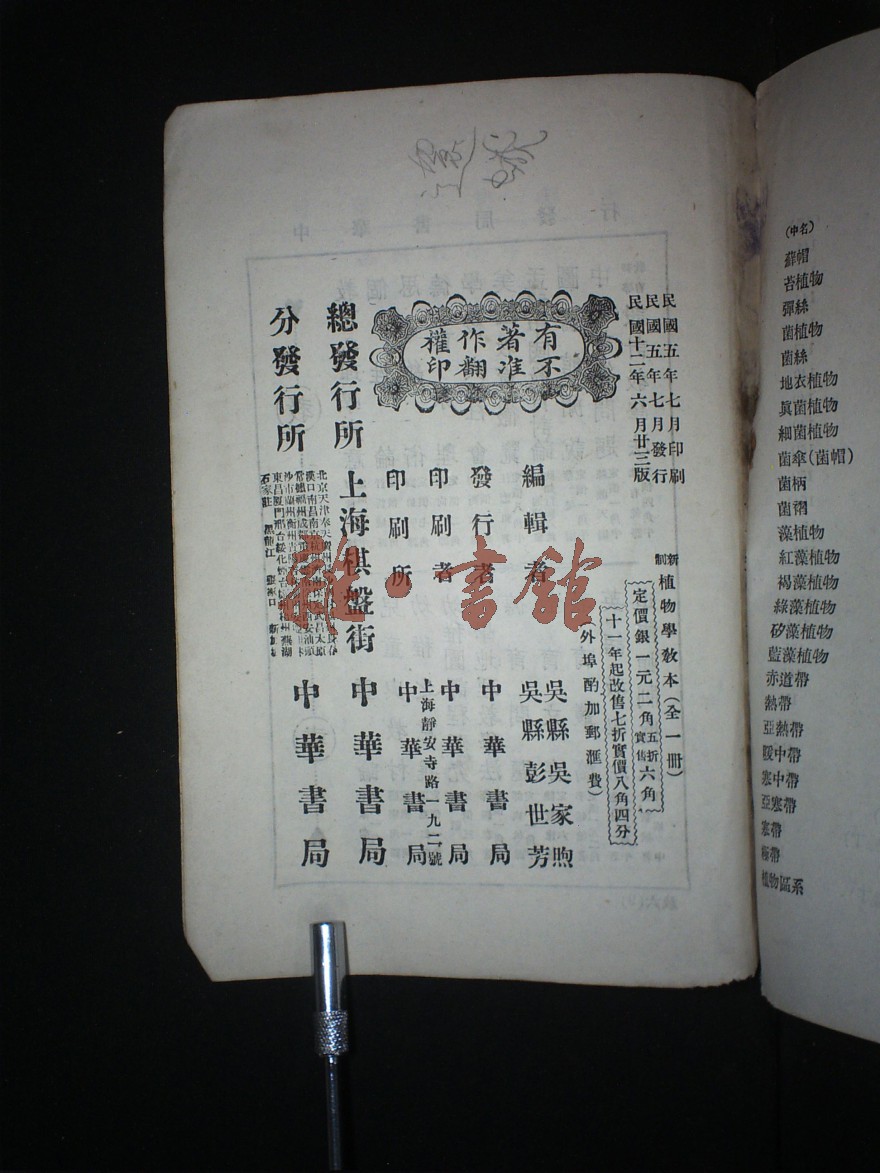 民國五年七月印刷
民國五年七月發行
民國十二年六月廿三版
有著作權
不准翻印
新制植物學教本(全一冊)
定價銀一元二角五折實售六角
十一年起改售七折實價八角四分
外埠酌加郵匯費
編輯者
吳縣吳家煦
吳縣彭世芳
發行者 中華書局
印刷者 中華書局
印刷所
上海靜安寺路一九二號
中華書局
總發行所 上海棋盤街 中華書局
分發行所
北京天津奉天
漢口南昌南京
石家莊 黑龍江
中華書局
書館
(中名)
蘚帽
苔植物
彈絲
菌植物
菌絲
地衣植物
眞菌植物
細菌植物
菌傘(菌帽)
菌柄
菌褶
藻植物
紅藻植物
褐藻植物
綠藻植物
矽藻植物
藍藻植物
赤道帶
熱帶
亞熱帶
暖中帶
寒中帶
亞寒帶
寒帶
極帶
植物區系